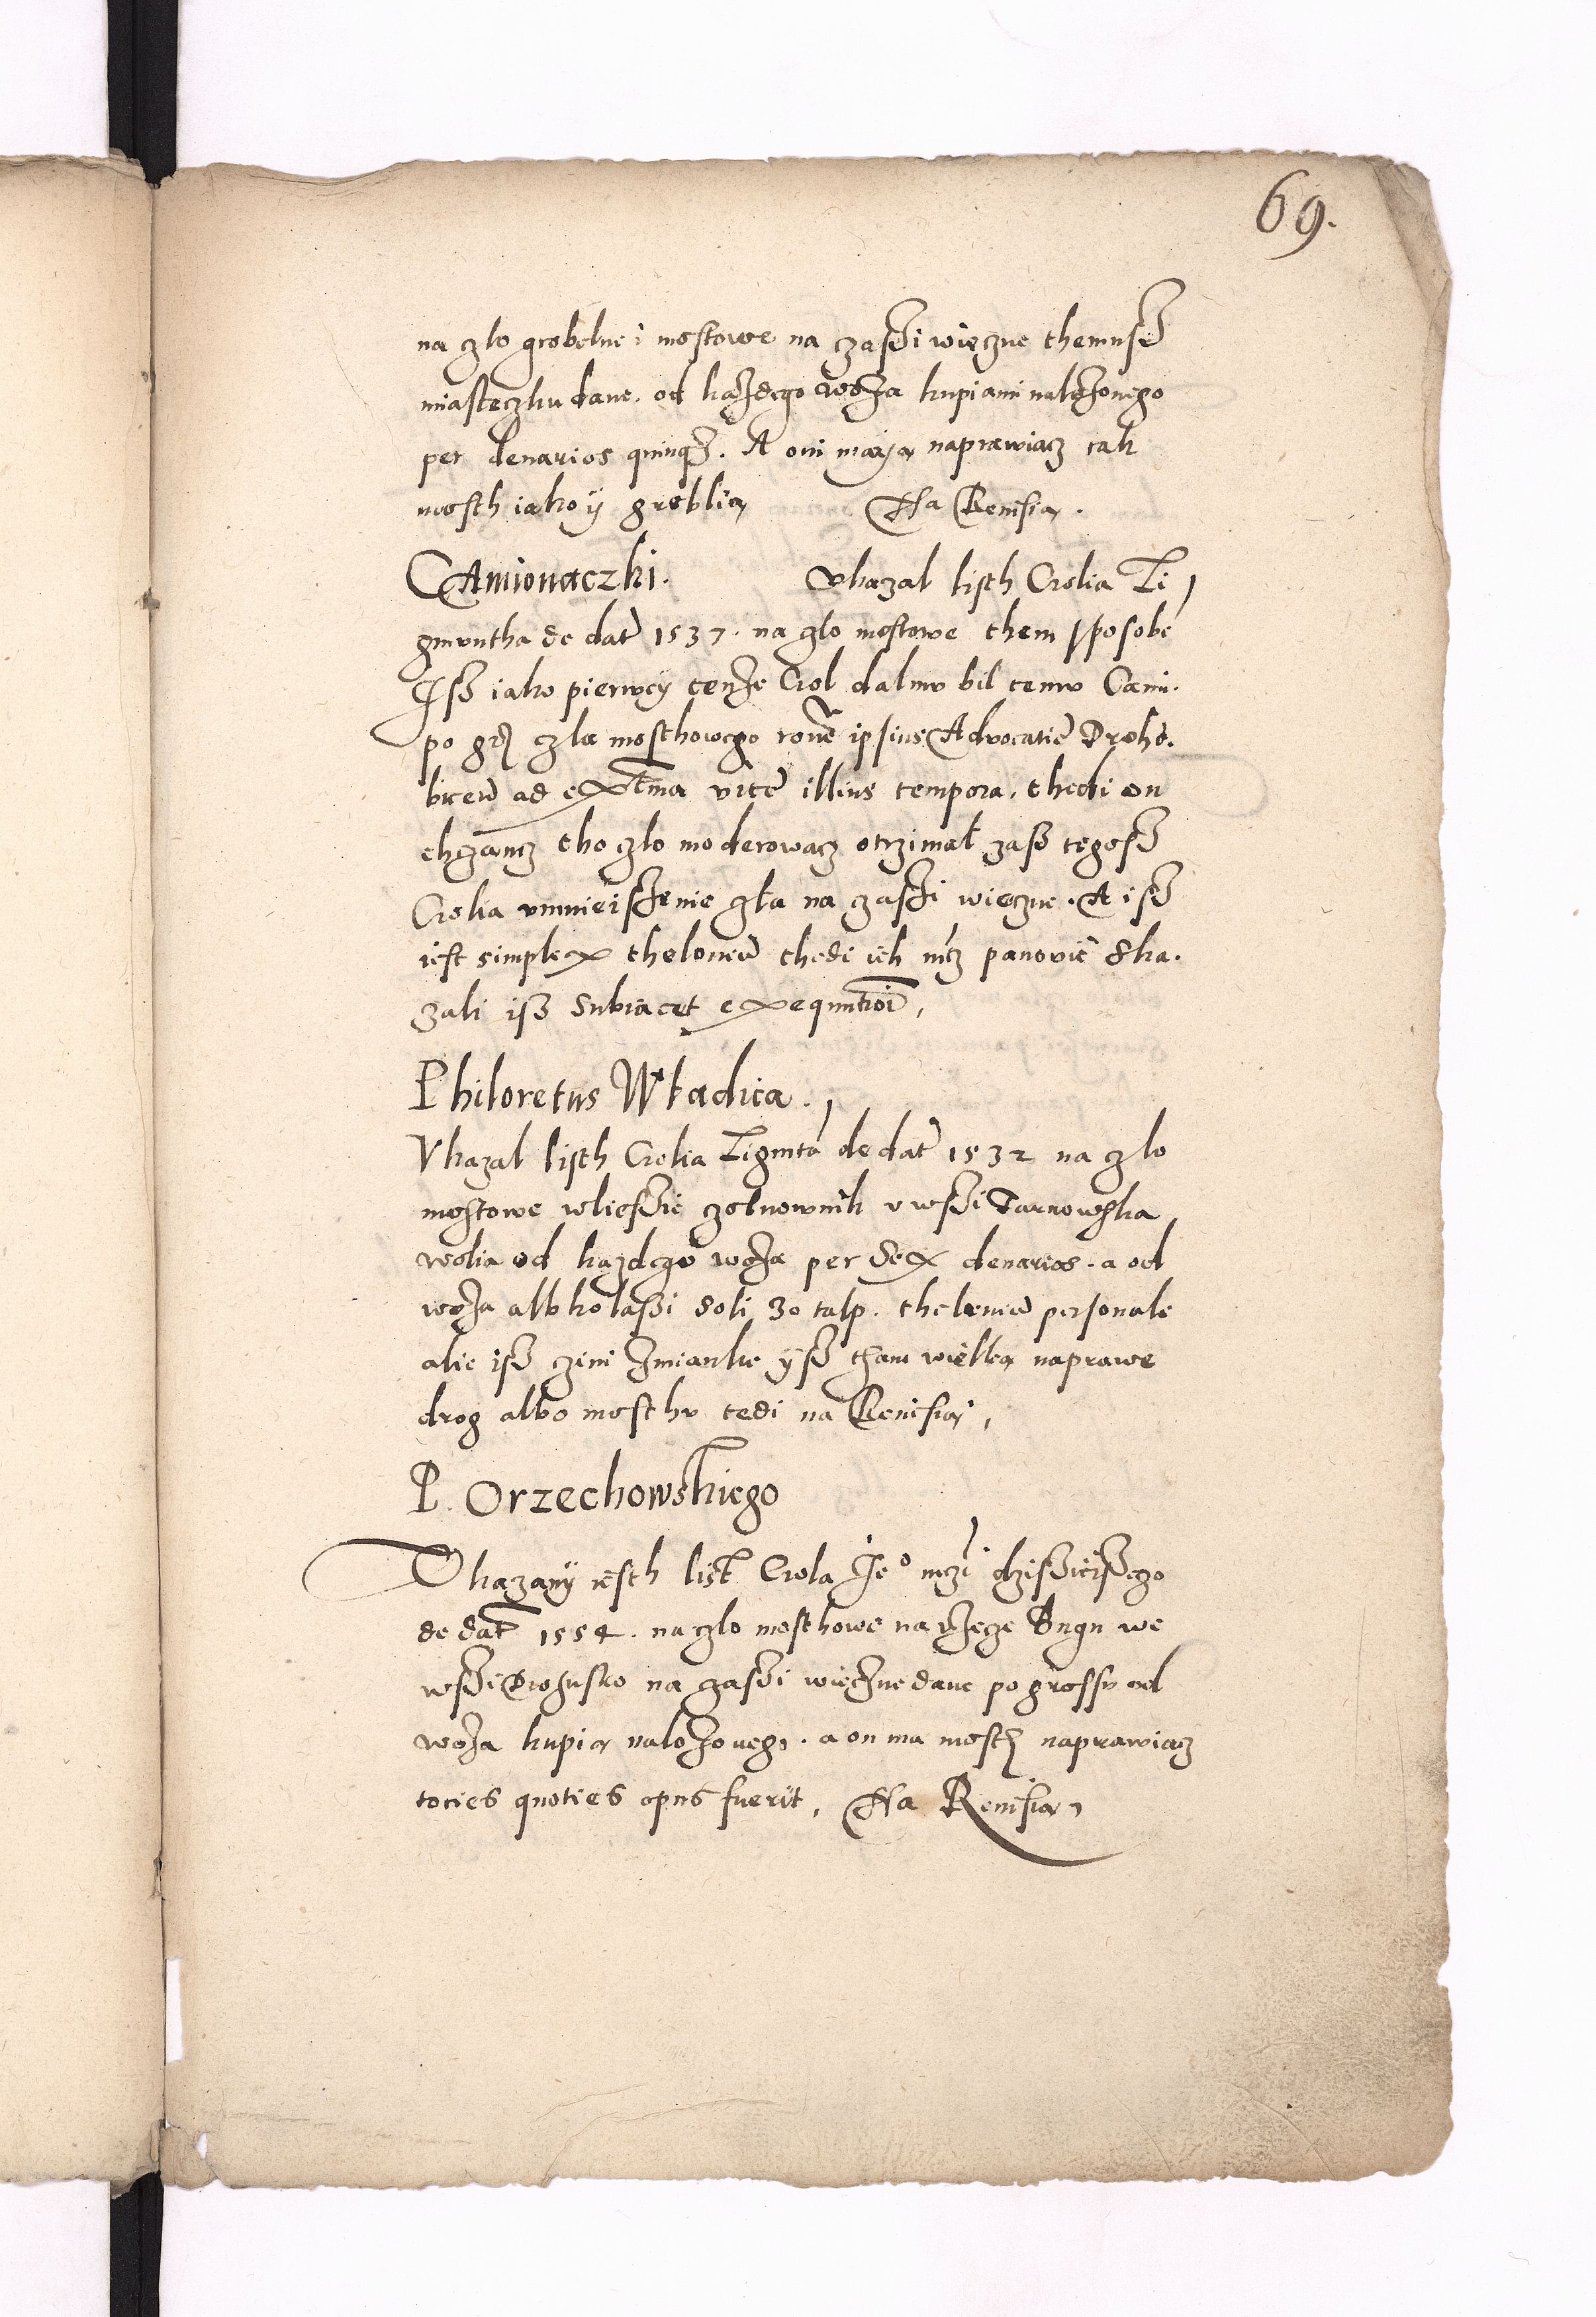 69.
na czlo grobelne i mostowe na czassi wieczne themuss
miasteczku dane. od kazdego woza kupiami nalozonego
per denarios quinqz. A oni maya naprawiacz tak
mosth iako y groblia Na Renisia.
Camionaczki. Vkazal listh Crolia Zi,
gmuntha de dat 1537. na czlo mostowe them sposobe
Iss iako pierwey tenze Crol dal mu bil temu Cami.
po gr czla mosthowego ipsius Advocatie Droho.
bicen ad extma vite illius tempora. thedi on
chczancz tho czlo moderowacz otrzimal zass tegoss
Crolia vmnieiszenie czla na czassi wieczne. A iss
iest simplex theloneu thedi ich mcz panovie ska.
zali iss subiacet exequutioi,
Philoretus Wladica.
Vkazal listh Crolia Zigmta de dat 1532 na czlo
mostowe wliessie v wssi Tarnowska
wolia od kazdego woza per sex denarios. a od
woza alb kolassi soli 30 talp. theloneu personale
alie iss czini zmianke yss tham wielka naprawe
drog albo mosthu tedi na Renisia,
P. Orzechowskiego
Vkazany iesth list Crola Je° mczi dzissieissego
de dat 1554. na czlo mosthowe na rzecze Bugu we
wssi na czassi wieczne dane po grossu od
woza kupia nalozonego. a on ma mosth naprawiacz
toties quoties opus fuerit, Na Renisia,